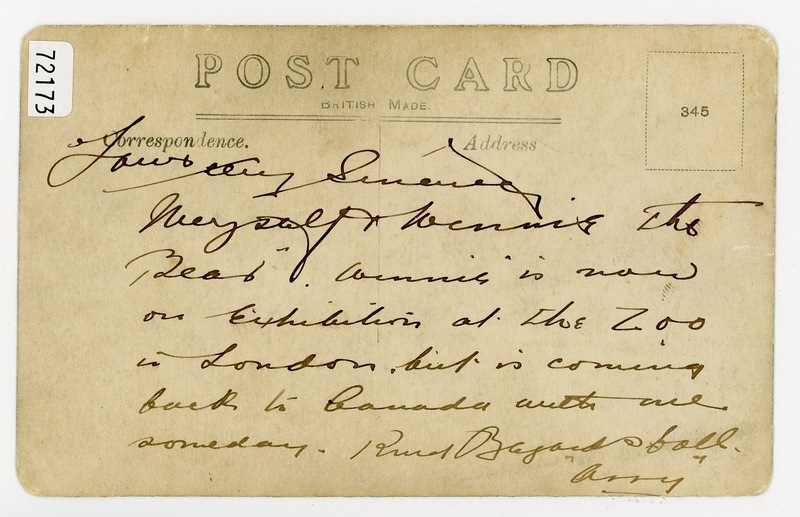 72173
POST CARD
BRITISH MADE.
345
Correspondence.
Address
Yours very Sincerely
Meryself & Winnie the
Bear". Winnie" is now
on Exhibition at the Zoo
in London, but is coming
back to Canada with me
someday. Kind Regards to all.
"Arry"